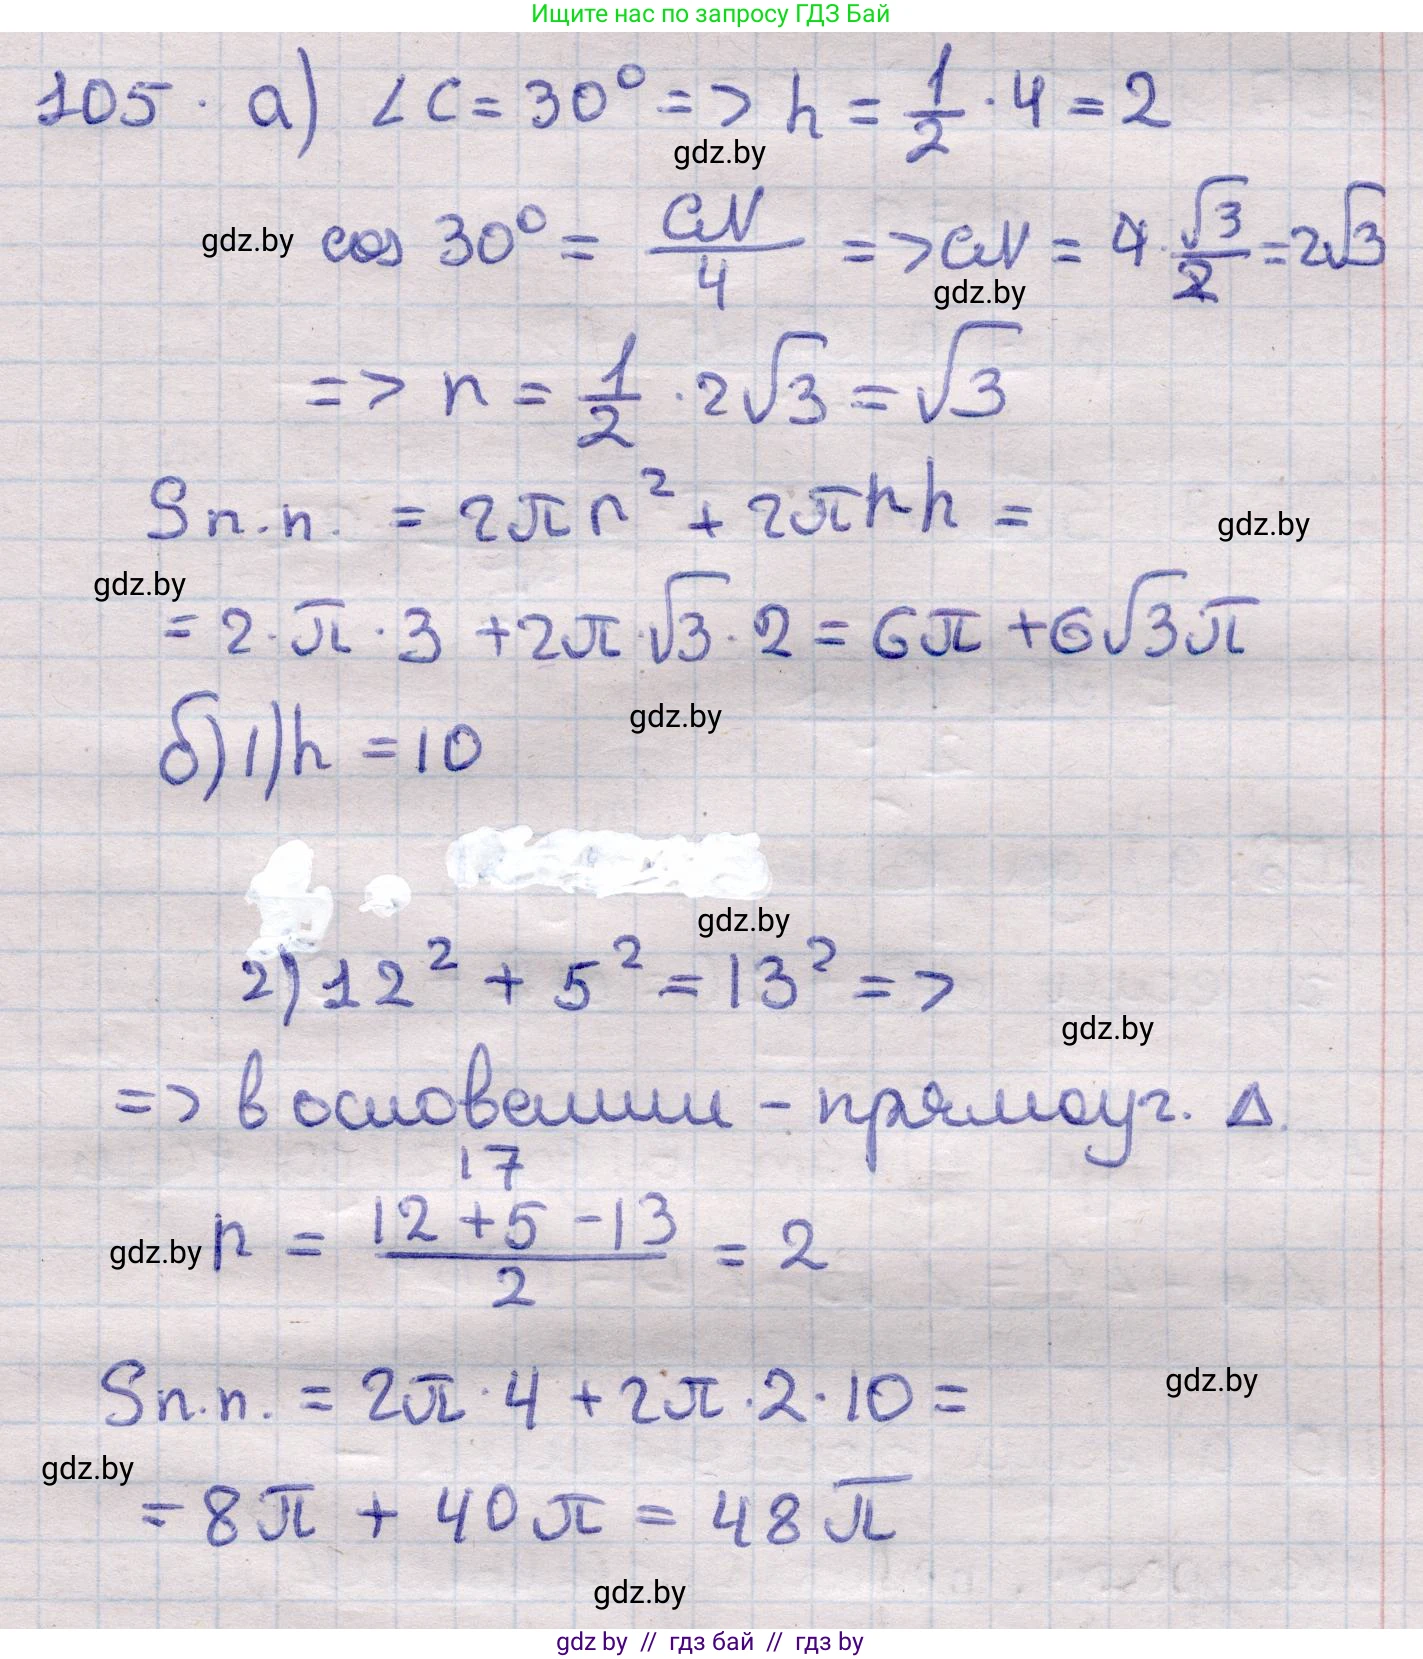 Ищите нас по запросу ГДЗ Бай
105. а) ∠C = 30° => h = 1/2 · 4 = 2
gdz.by
gdz.by
cos 30° = CN/4 => CN = 4 · √3/2 = 2√3
gdz.by
=> r = 1/2 · 2√3 = √3
Sп.п. = 2πr² + 2πrh =
gdz.by
gdz.by
= 2·π·3 + 2π·√3·2 = 6π + 6√3π
gdz.by
б) 1) h = 10
gdz.by
2) 12² + 5² = 13² =>
gdz.by
=> в основании - прямоуг. Δ.
17
gdz.by
r = (12 + 5 - 13)/2 = 2
gdz.by
Sп.п. = 2π·4 + 2π·2·10 =
gdz.by
= 8π + 40π = 48π
gdz.by
gdz by // гдз бай // гдз by